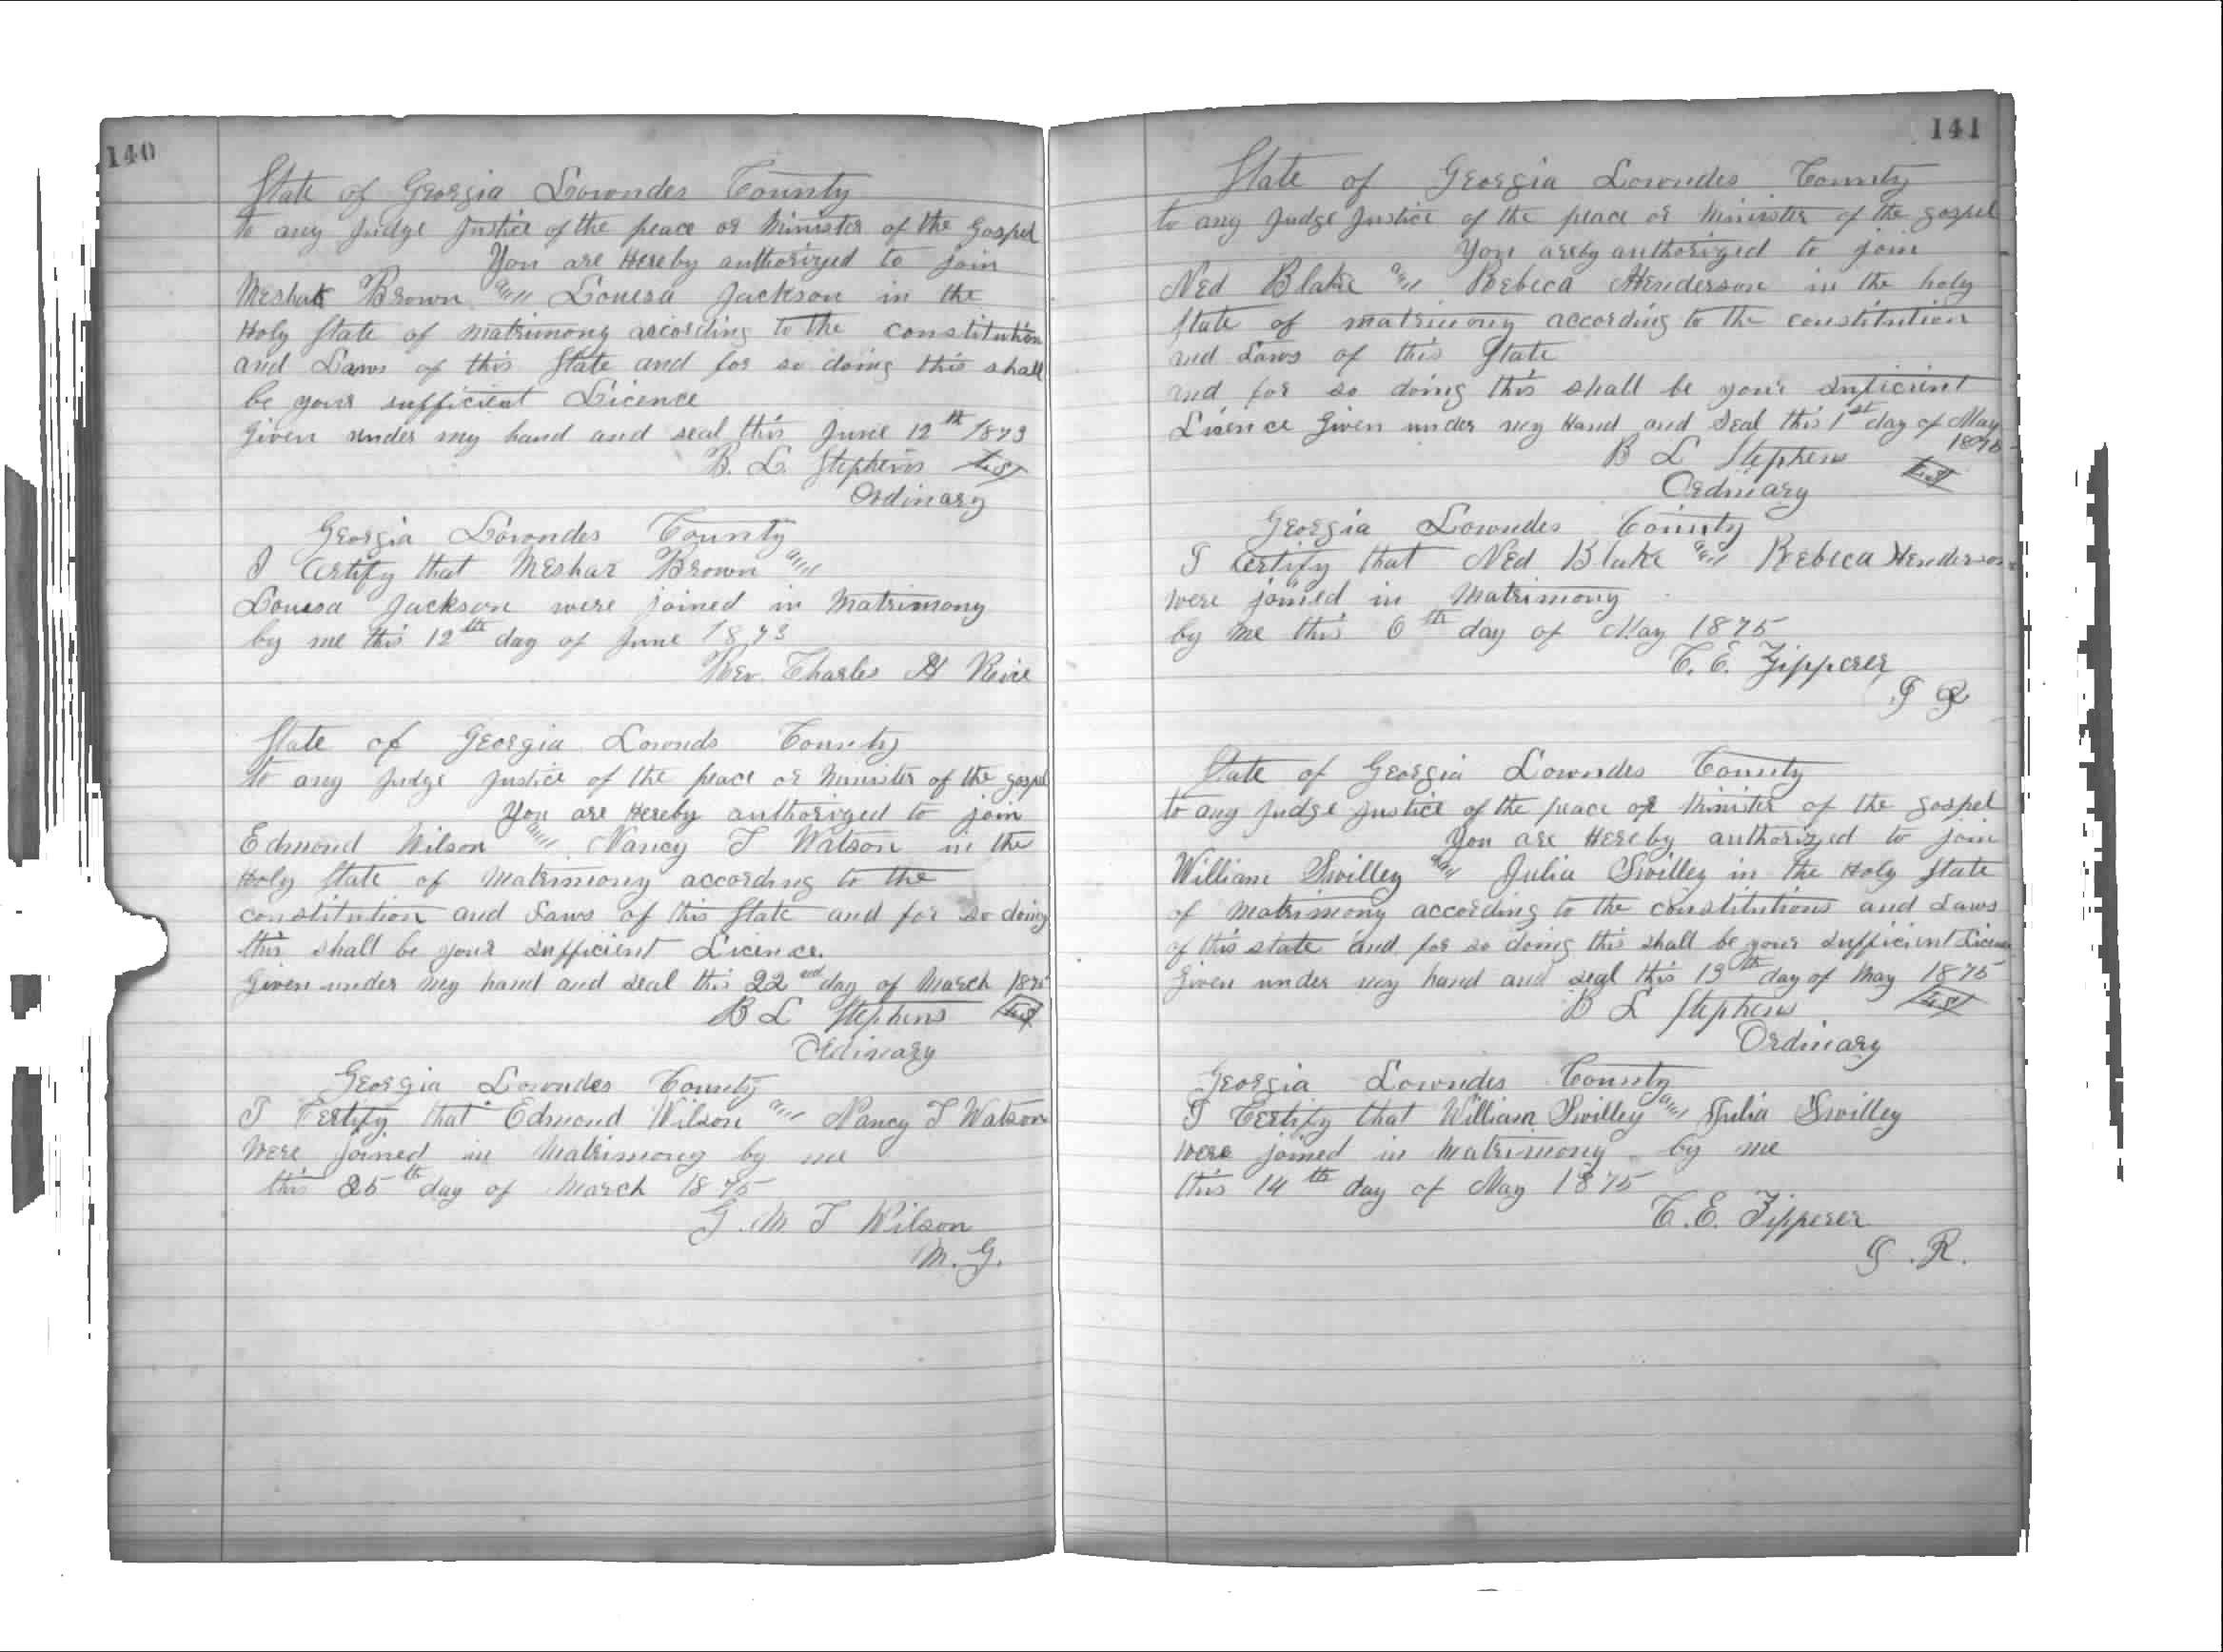 140
State of Georgia Lowndes County
to any Judge Justice of the peace or Minister of the Gospel
You are Hereby authorized to join
Brown and Louesa Jackson in the
Holy State of matrimony according to the constitution
and Laws of this State and for so doing this shall
be your sufficient Licence
Given under my hand and seal this June 12th 1873
B. L. Stephens L.S
Ordinary
Georgia Lowndes County
I Certify that Meshac Brown and
Louesa Jackson were joined in Matrimony
by me this 12th day of June 1873
Rev. Charles H
State of Georgia Lownds County
to any Judge Justice of the peace or Minister of the gospel
You are Hereby authorized to join
Edmond Wilson and Nancy T Watson in the
Holy State of Matrimony according to the
constitution and Laws of this State and for so doing
this shall be your sufficient Licence.
Given under my hand and seal this 22nd day of March 1875
B L Stephens L.S
Ordinary
Georgia Lowndes County
I Certify that Edmond Wilson and Nancy T Watson
were joined in Matrimony by me
this 25th day of March 1875
J. M. T Wilson
M. G.
141
State of Georgia Lowndes County
to any Judge Justice of the peace or Minister of the gospel
You areby authorized to join
Ned Blake and Rebeca Henderson in the holy
State of matrimony according to the constitution
and Laws of this State
and for so doing this shall be your suficient
Licence Given under my Hand and Seal this 1st day of May
1875
B L Stephens L.S
Ordinary
Georgia Lowndes County
I Certify that Ned Blake and Rebeca Henderson
were joined in Matrimony
by me this 6th day of May 1875
C. E. Zipperer
State of Georgia Lowndes County
to any Judge Justice of the peace or Minister of the gospel
You are Hereby authorized to join
William Swilley and Julia Swilley in the Holy State
of Matrimony according to the constitutions and Laws
of this state and for so doing this shall be your sufficient Licence
Given under my hand and seal this 13th day of May 1875
B L Stephens L.S
Ordinary
Georgia Lowndes County
I Certify that William Swilley and Julia Swilley
were joined in Matrimony by me
this 14th day of May 1875
C. E. Zipperer